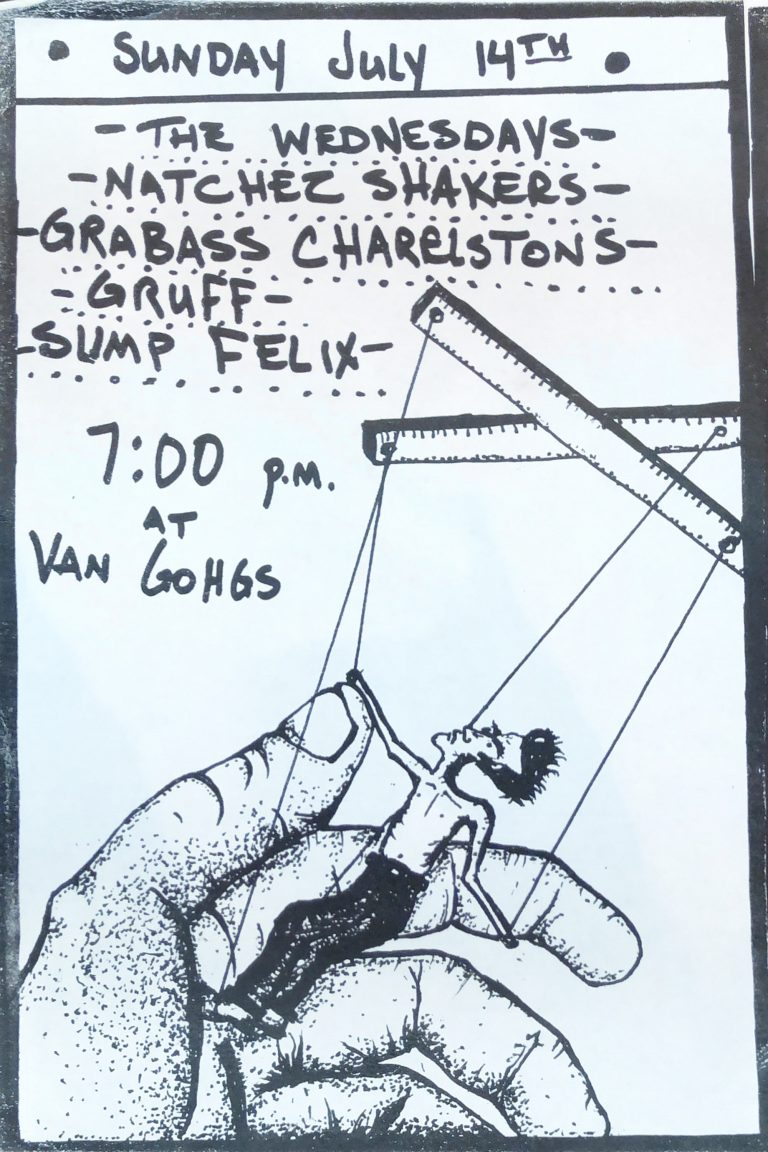 • SUNDAY JULY 14TH •
- THE WEDNESDAYS -
- NATCHEZ SHAKERS -
- GRABASS CHARELSTONS -
- GRUFF -
- SUMP FELIX -
7:00 p.m.
AT
VAN GOHGS